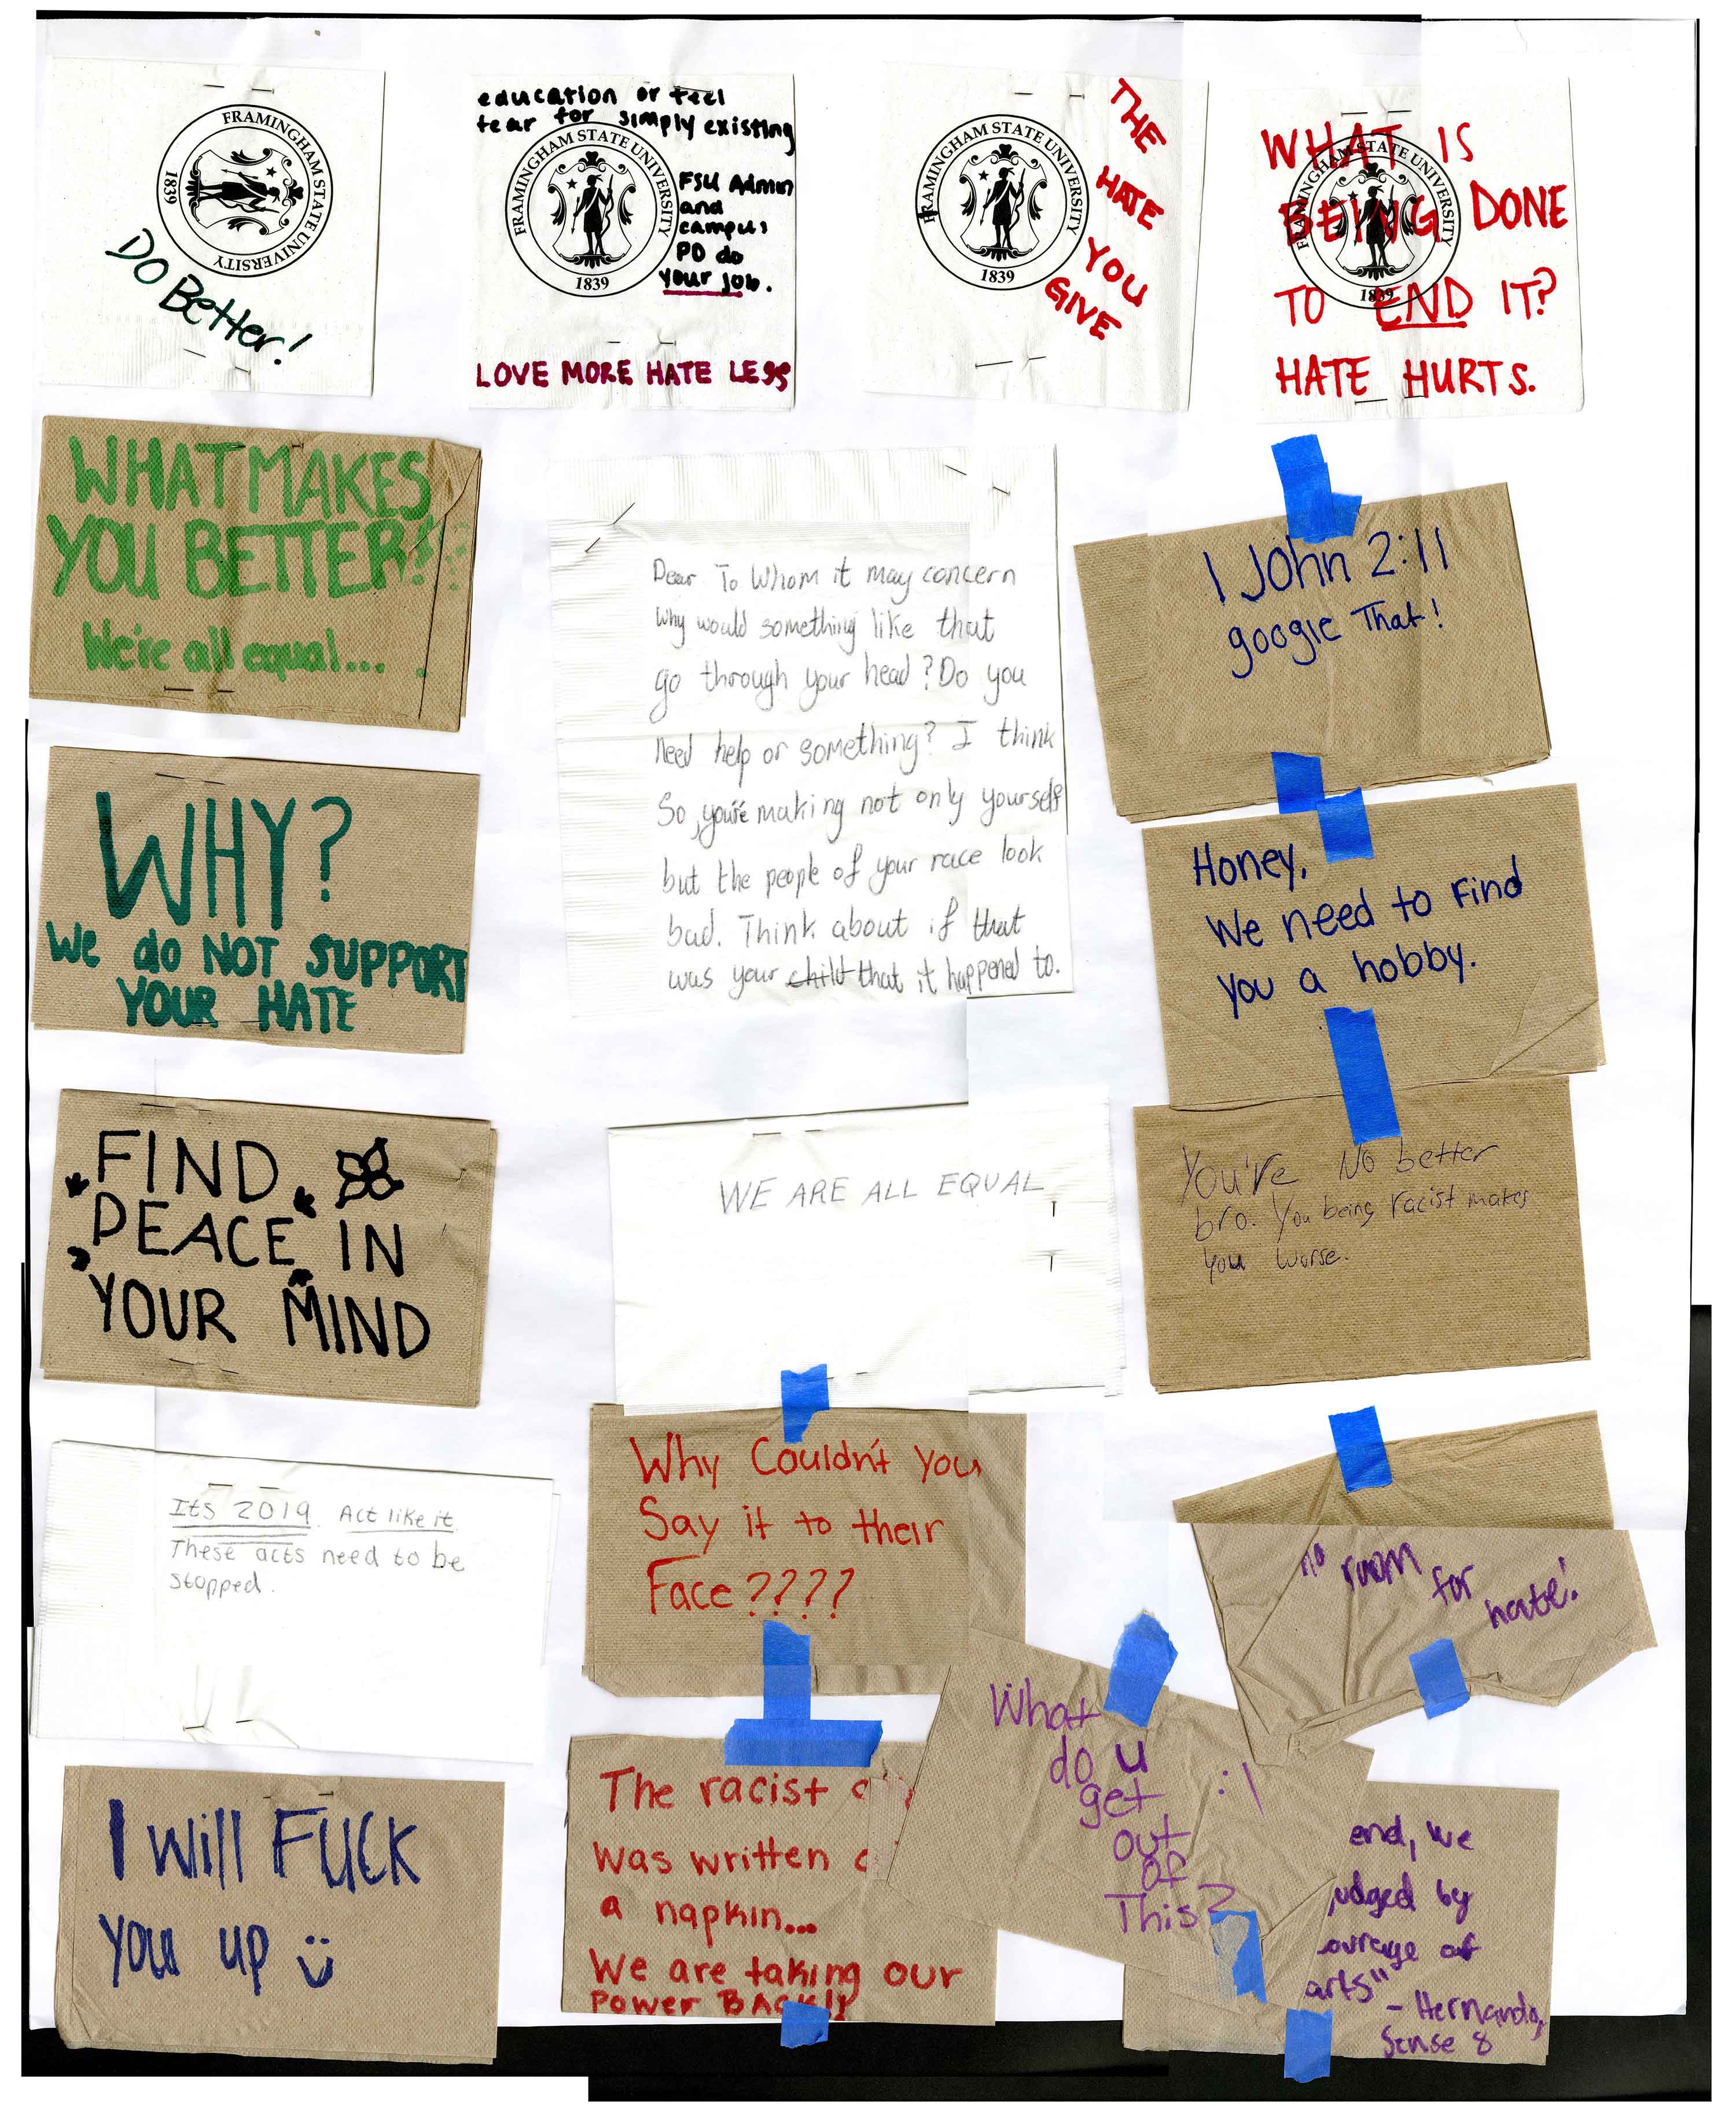 FRAMINGHAM STATE UNIVERSITY
1839
Do Better!
education or feel
fear for simply existing
FRAMINGHAM STATE UNIVERSITY
1839
FSU Admin
and
campus
PD do
your job.
LOVE MORE HATE LESS
FRAMINGHAM STATE UNIVERSITY
1839
THE
HATE
YOU
GIVE
FRAMINGHAM STATE UNIVERSITY
1839
WHAT IS
BEING DONE
TO END IT?
HATE HURTS.
WHAT MAKES
YOU BETTER?
We're all equal....
WHY?
We do NOT SUPPORT
YOUR HATE
FIND
PEACE IN
YOUR MIND
Its 2019. Act like it.
These acts need to be
stopped.
I will FUCK
you up
Dear To Whom it may concern
Why would something like that
go through your head? Do you
need help or something? I think
So, you're making not only yourself
but the people of your race look
bad. Think about if that
was your child that it happened to.
WE ARE ALL EQUAL
Why Couldn't you
Say it to their
Face????
The racist
was written
a napkin...
We are taking our
POWER BACK!!
1 John 2:11
google That!
Honey,
We need to find
you a hobby.
You're No better
bro. You being racist makes
you worse.
no room for hate!
What
do u
get :|
out
of
This?
end, we
udged by
ourage of
arts"
- Hernando,
Sense 8